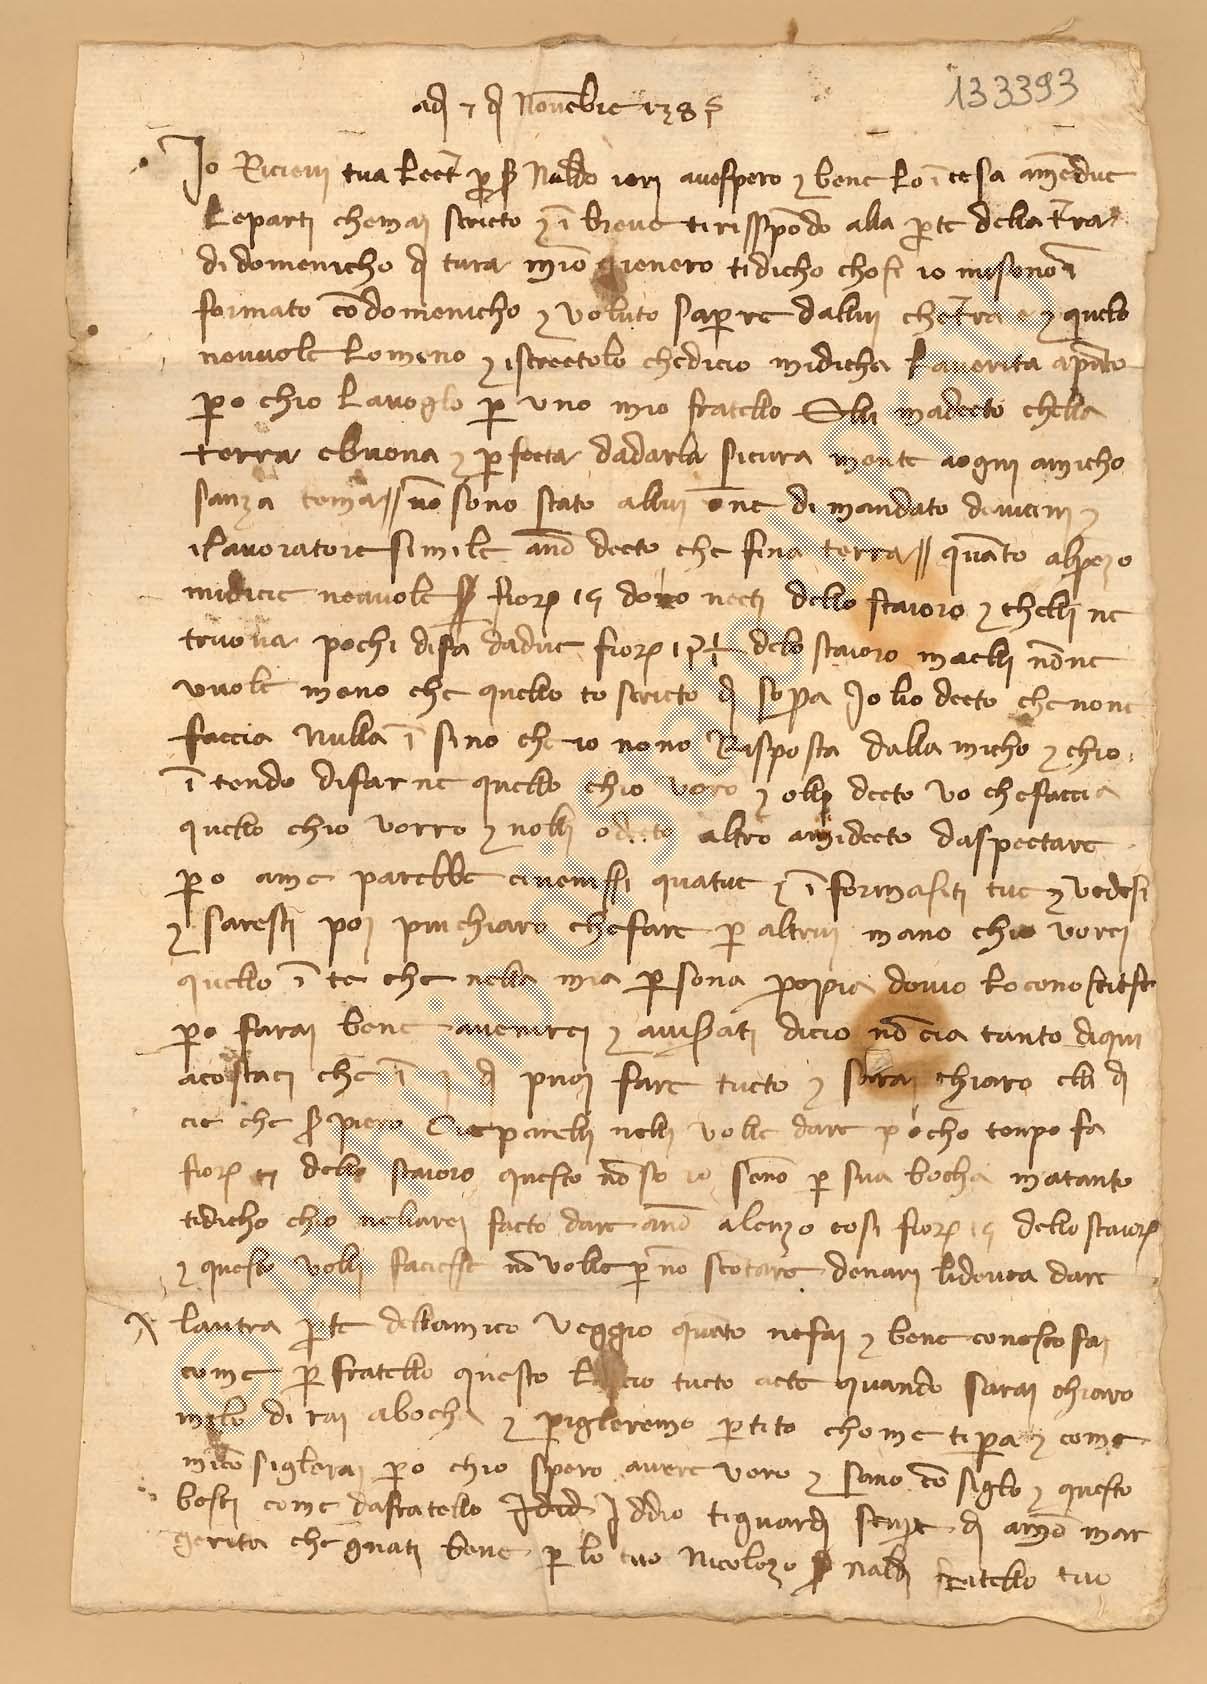 133393
adj 7 dj Novēbre 1385
Io Ricievi tua lect per ser Naldo ieri avespero 7 bene lo ī tesa amēdue
leparti chemai scricto 7 ī breve tirisspōdo alla pte della tra
di domenicho dj tura mio gienero tidicho chosi io misono ī
formato cō domenicho 7 voluto sapere dallui che tra e 7 quello
nevvole lomeno 7 istrectolo chedicio midicha laverita apūto
po chio lavoglo p uno mio fratello Elli madecto chella
terra ebuona 7 pfecta dadarla sicura mente aogni amicho
sanza tema // nō sono stato allui one dimandato devicini 7
ilavoratore simile anō decto che fina terra // quāto alpezo
midicie nevvole fior 15 netti dello staioro 7 chelli ne
truova pochi difa dadue fior dello staioro maelli nōne
vuole meno che quello to scricto dj sopra Io lio decto che none
faccia nulla ī sino che io nono Risposta dalla micho 7 chio
ī tendo difarne quello chio voro 7 decto vo chefaccia
quello chio vorro 7 nolli altro amidecto daspectare
po ame parebbe civenissi quatue 7 ī formasiti tue 7 vedesi
7 saresti poi piu chiaro chefare p altrui mano chio vorei
quello ī te che nella mia psona propia dovio loconosciesse
po farai bene avenirci 7 avisati dicio nō cia tanto diqui
acostaci che ī dj puoi fare tucto 7 sarai chiaro elli dj
cie che ser piero nelli volle dare pocho tenpo fa
fior dello staioro questo nōso io senō p sua bocha matanto
tidicho chio nellarei facto dare anō alenzo cosi fior 15 dello staior
7 questo velli faciesse nō volle p nō scōtare denari lidovea dare
laltra pte dellamico veggio quāto nefai 7 bene conosco fai
come p fratello questo lascio tucto atte quando sarai chiaro
melo dirai abocha 7 pigleremo ptito chome tipa 7 come
micō siglerai po chio spero avere vero 7 sano cō siglo 7 questo
basti come dafratello Iddio tiguardj senpre dj amō mar
gerita che guati bene p lo tuo Nicolozo ser naldj fratello tuo